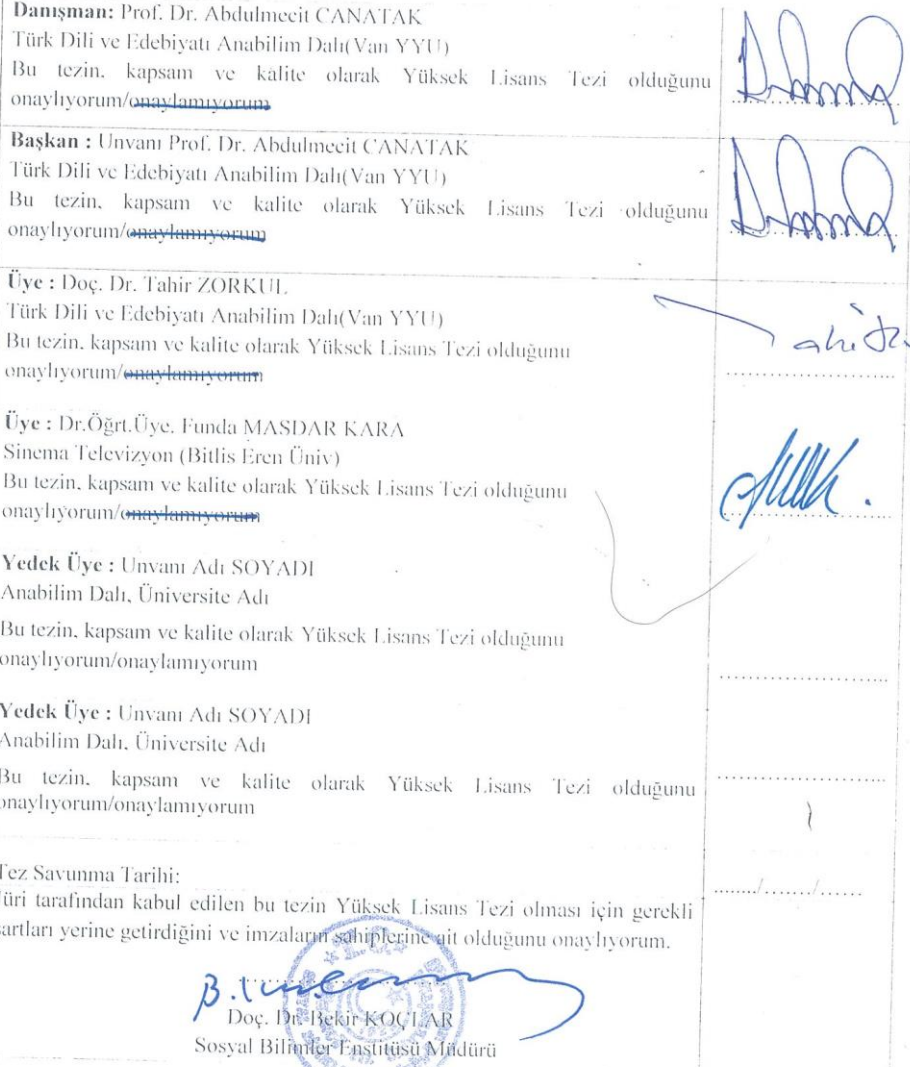 Danışman: Prof. Dr. Abdulmecit CANATAK
Türk Dili ve Edebiyatı Anabilim Dalı(Van YYU)
Bu tezin, kapsam ve kalite olarak Yüksek Lisans Tezi olduğunu
onaylıyorum/onaylamıyorum
Başkan : Unvanı Prof. Dr. Abdulmecit CANATAK
Türk Dili ve Edebiyatı Anabilim Dalı(Van YYU)
Bu tezin, kapsam ve kalite olarak Yüksek Lisans Tezi olduğunu
onaylıyorum/onaylamıyorum
Üye : Doç. Dr. Tahir ZORKUL
Türk Dili ve Edebiyatı Anabilim Dalı(Van YYU)
Bu tezin, kapsam ve kalite olarak Yüksek Lisans Tezi olduğunu
onaylıyorum/onaylamıyorum
Üye : Dr.Öğrt.Üye. Funda MASDAR KARA
Sinema Televizyon (Bitlis Eren Üniv)
Bu tezin, kapsam ve kalite olarak Yüksek Lisans Tezi olduğunu
onaylıyorum/onaylamıyorum
Yedek Üye : Unvanı Adı SOYADI
Anabilim Dalı, Üniversite Adı
Bu tezin, kapsam ve kalite olarak Yüksek Lisans Tezi olduğunu
onaylıyorum/onaylamıyorum
Yedek Üye : Unvanı Adı SOYADI
Anabilim Dalı, Üniversite Adı
Bu tezin, kapsam ve kalite olarak Yüksek Lisans Tezi olduğunu
onaylıyorum/onaylamıyorum
Tez Savunma Tarihi: ......../......./......
Jüri tarafından kabul edilen bu tezin Yüksek Lisans Tezi olması için gerekli
şartları yerine getirdiğini ve imzaların sahiplerine ait olduğunu onaylıyorum.
Doç. Dr. Bekir KOÇLAR
Sosyal Bilimler Enstitüsü Müdürü